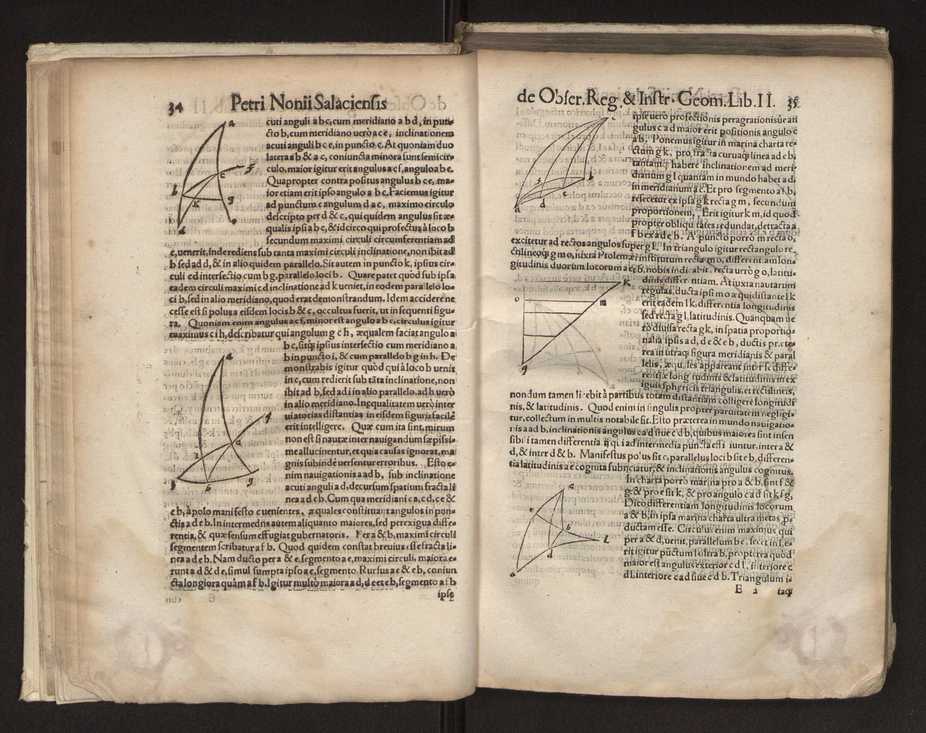 34 Petri Nonii Salaciensis
cuti anguli a b c, cum meridiano a b d, in pun-
cto b, cum meridiano uerò a c e, inclinationem
acuti anguli b c e, in puncto c. At quoniam duo
latera a b & a c, coniuncta minora sunt semicir-
culo, maior igitur erit angulus a c f, angulo a b c.
Quapropter contra positus angulus b c e, ma-
ior etiam erit ipso angulo a b c. Faciemus igitur
ad punctum c angulum d a c, maximo circulo
descripto per d & c, qui quidem angulus sit æ-
qualis ipsi a b c, & idcirco qui profectus à loco b
secundum maximi circuli circumferentiam ad
c, uenerit. Inde rediens sub tanta maximi circuli inclinatione, non ibit ad
b sed ad d, & in alio quidem parallelo. Sit autem in puncto k, ipsius cir-
culi c d intersectio cum b g, parallelo loci b. Quare patet quòd sub ipsa
eadem circuli maximi c d inclinatione ad k ueniet, in eodem parallelo lo-
ci b, sed in alio meridiano, quod erat demonstrandum. Idem accidere ne
cesse est si polus a eisdem locis b & c, occultus fuerit, ut in sequenti figu-
ra. Quoniam enim angulus a c f, minor est angulo a b c, circulus igitur
maximus c i h, describatur qui angulum g c h, æqualem faciat angulo a
b c, sitque ipsius intersectio cum meridiano a
b in puncto i, & cum parallelo b g in h. De
monstrabis igitur quòd qui à loco b uenit
in c, cum redierit sub tãta inclinatione, non
ibit ad b, sed ad i in alio parallelo, ad h uerò
in alio meridiano. Inæqualitatem uerò inter
uiatorias distantias in eisdem figuris facilè
erit intelligere. Quæ cum ita sint, mirum
non est si nautæ inter nauigandum sæpissi-
me allucinentur, et quia causas ignorat, ma
gnis subinde uersentur erroribus. Esto e-
nim nauigationis a ad b, sub inclinatione
acuti anguli a d, decursum spatium fracta li
nea a d e b. Cum qua meridiani c a, c d, c e &
c b, à polo manifesto euenientes, æquales constituãt angulos in pun-
ctis a d e b. In intermedijs autem aliquanto maiores, sed perexigua diffe-
rentia, & quæ sensum effugiat gubernatoris. Per a & b, maximi circuli
segmentum scribatur a f b. Quod quidem constat breuius esse fracta li-
nea a d e b. Nam ducto per a & e segmento a e, maximi circuli, maiora e-
runt a d & d e, simul sumpta ipso a e, segmento. Rursus a e & e b, coniun
cta longiora quàm a f b. Igitur multò maiora a d, d e et e b, segmento a f b
ipsę
de Obser. Reg. & Instr. Geom. Lib. II. 35
ipse uero profectionis peragrationisue an
gulus c a d maior erit positionis angulo c
a b. Ponemus igitur in marina charta re-
ctam g k, pro fracta curuaque linea a d e b,
tantamque habere inclinationem ad meri
dianum g l quantam in mundo habet a d
in meridianum a c. Et pro segmento a f b,
resecetur ex ipsa g k recta g m, secundum
proportionem. Erit igitur k m, id quod
propter obliquitates redundat, detracta a
f b ex a d e b. A puncto porrò m recta o,
excitetur ad rectos angulos super g l. In triangulo igitur rectangulo re-
ctilineo g m o, iuxta Ptolemæi institutum recta g o, differentiam lon-
gitudinis duorum locorum a & b, nobis indicabit, recta uerò g o, latitu-
dinis differentiam. At iuxta nautarum
regulas, ducta ipsi m o æquidistante l k
erit eadem l k, differentia longitudinis
sed recta g l, latitudinis. Quanquam ue
ro diuisa recta g k, in spatia proportio-
nalia ipsis a d, d e & e b, ductis præte-
rea in utraque figura meridianis & paral
lelis, æquales appareant inter se differe-
ntiæ longitudinis & latitudinis in ex
iguis sphæricis triangulis, et rectilineis,
non dum tamen licebit à partibus totam distantiam colligere longitudi-
nis, & latitudinis. Quod enim in singulis propter paruitatem negligi-
tur, collectum in multis notabile sit. Esto præterea in mundo nauigatio-
nis a ad b, inclinationis angulus c a d siue c d b, quibus maiores sint insen
sibili tamen differentia ij qui ad intermedia puncta fiunt, inter a &
d, & inter d & b. Manifestus polus sit c, parallelus loci b sit e b, differen-
tia latitudinis a e cognita subijciatur, & inclinationis angulus cognitus.
In charta porrò marina pro a & b, sint f &
g, & pro e sit k, & pro angulo c a d sit k f g.
Dico differentiam longitudinis locorum
a & b, in ipsa marina charta ultra metas pro
ductam esse. Circulus enim maximus qui
per a & d, uenit, parallelum b e, secet in l. e-
rit igitur punctum l ultra b, propterea quòd
maior est angulus exterior c d l, interiore c
d l, interiore c a d siue c d b. Triangulum i-
E 2 taque